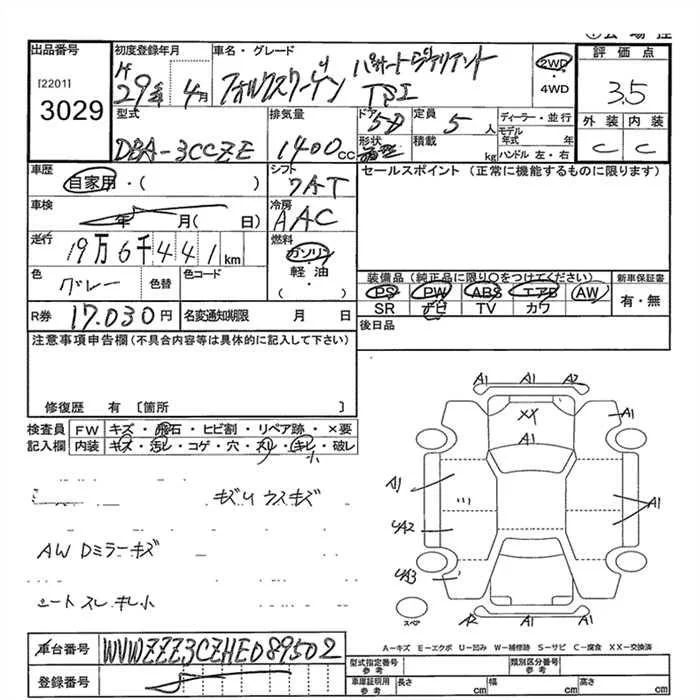 出品番号
[2201]
3029
初度登録年月
H 29年 4月
車名・グレード
フォルクスワーゲン パサートヴァリアント
TSI
2WD
・
4WD
評価点
3.5
外装 内装
C C
型式
DBA-3CCZE
排気量
1400cc
ドア 5D
形状
定員 5人
積載 kg
ディーラー・並行
モデル年式 年
ハンドル 左・右
車歴
自家用・( )
シフト
7AT
セールスポイント (正常に機能するものに限ります)
車検
年 月( 日)
冷房
AAC
走行
19万6千441km
燃料
ガソリン
軽油
・
( )
色
グレー
色替
色コード
装備品 (純正品に限り○をつけてください)
PS PW ABS エアB AW
SR ナビ TV カワ
新車保証書
有・無
R券 17.030円
名変通知期限 月 日
後日品
注意事項申告欄(不具合内容等は具体的に記入して下さい)
修復歴 有 [箇所 ]
検査員
記入欄
FW キズ・飛石・ヒビ割・リペア跡・×要
内装 キズ・汚レ・コゲ・穴・スレ・キレ・破レ
小
キズU ウスキズ
AW Dミラーキズ
シートスレ キレ小
A1 A1 A2
XX
A1
A1
A1
A1
UA2
UA3
A2 A1
スペア
A-キズ E-エクボ U-凹み W-補修跡 S-サビ C-腐食 XX-交換済
車台番号
WVWZZZ3CZHE089502
登録番号
型式指定番号
参考
類別区分番号
参考
車庫証明用
参考
長さ cm
幅 cm
高さ cm